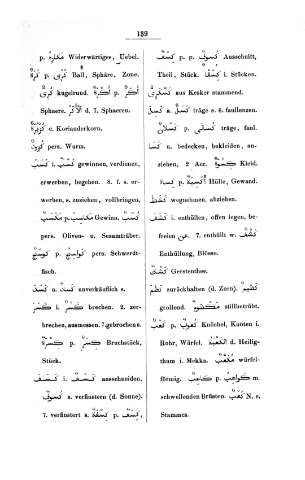 139
p. مكاره Widerwärtiges, Uebel.
كرة p. كرى Ball, Sphäre, Zone.
كرى kugelrund. أكرة p. أكر
Sphaere. الأكر d. 7. Sphaeren.
كزبرة c. Korianderkorn.
pers. Wurm.
كسب i. كسب gewinnen, verdienen,
erwerben, begehen. 8. f. s. er-
werben, s. zueichen, vollbringen,
كسب Gewinn. مكسب p. مكاسب
pers. Oliven- u. Sesamträber.
pers. Schwerdt-
fisch.
كسد u. كسد unverkäuflich s.
كسر i. كسر brechen. 2. zer-
brechen, ausmessen. 7. gebrochen s.
كسرة p. كسر Bruchstück,
Stück.
كسف i. كسف ausschneiden,
كسوف s. verfinstern (d. Sonne).
7. verfinstert s. كسفة p. كسف,
كسوف p. p. كسف Ausschnitt,
Theil, Stück. كسفا i. Stücken.
كسكري aus Kesker stammend.
كسل a. كسل träge s. o. faullenzen.
كسلان p. كسالى träge, faul.
كسا u. bedecken, bekleiden, an-
ziehen, 2 Acc. كسوة Kleid.
كساء p. أكسية Hülle, Gewand.
كشط wegnehmen, abziehen.
كشف i. enthüllen, offen legen, be-
freien عن. 7. enthüllt w. كشف
Enthüllung, Blösse.
كشك Gerstenthee.
كظم zurückhalten (d. Zorn). كظيم
grollend. مكظوم stillbetrübt.
كعب p. كعوب Knöchel, Knoten i.
Rohr, Würfel. الكعبة d. Heilig-
thum i. Mekka. مكعب würfel-
förmig. كاعب p. كواعب m.
schwellenden Brüsten. كعب N. e.
Stammes.